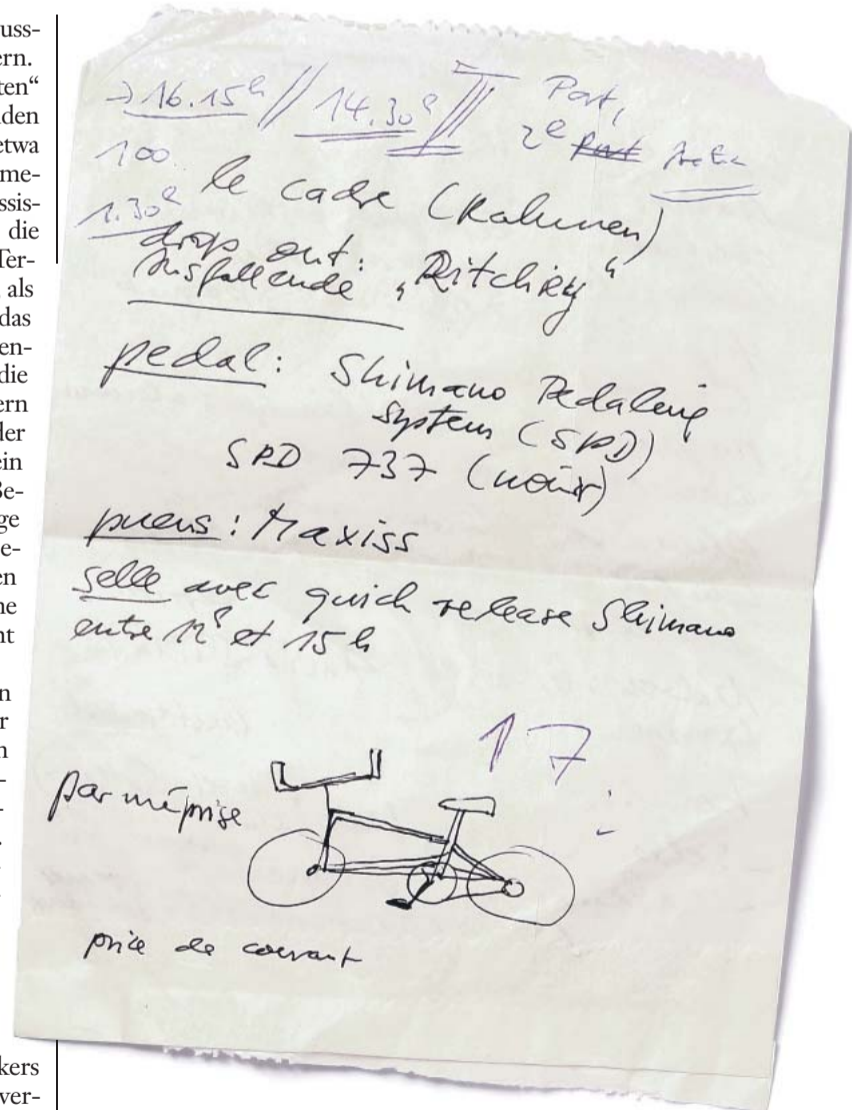 uss-
ern.
ten“
den
etwa
me-
ssis-
die
Ter-
als
das
en-
die
ern
der
ein
Be-
ge
e-
en
ne
nt
n
r
n
kers
ver-
→ 16.15h // 14.30h
Part,
2e
100
le cadre (Rahmen)
1.30h
drop out:
Ausfallende „Ritchey“
pedal: Shimano Pedaling
System (SPD)
SPD 737 (noir)
pneus: Maxiss
selle avec quick release Shimano
entre 12h et 15h
17
par méprise
prise de courant